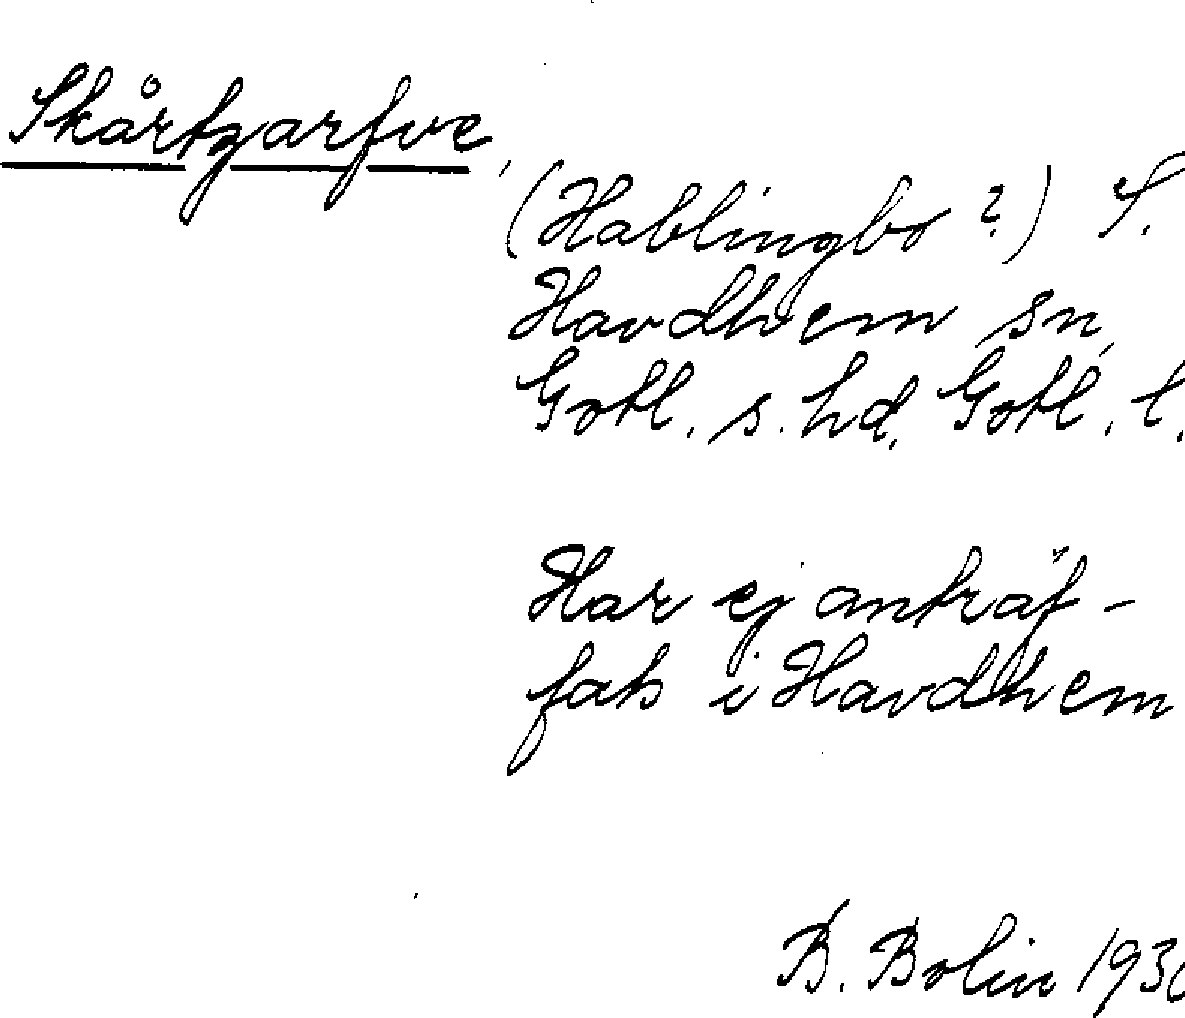 Skårtzarfve,
(Hablingbo ?) S.
Havdhem sn,
Gotl. s. hd, Gotl. l.
Har ej anträf-
fats i Havdhem
B. Bolin